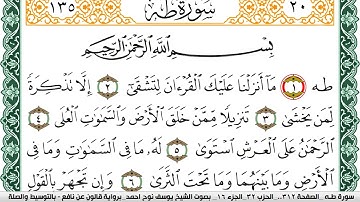 ١٣٥ سُورَةُ طه ٢٠
بِسْمِ اللَّهِ الرَّحْمَٰنِ الرَّحِيمِ
طه ١ مَا أَنزَلْنَا عَلَيْكَ الْقُرْءَانَ لِتَشْقَىٰ ٢ إِلَّا تَذْكِرَةً
لِّمَن يَخْشَىٰ ٣ تَنزِيلًا مِّمَّنْ خَلَقَ الْأَرْضَ وَالسَّمَٰوَٰتِ الْعُلَى ٤
الرَّحْمَٰنُ عَلَى الْعَرْشِ اسْتَوَىٰ ٥ لَهُ مَا فِي السَّمَٰوَٰتِ وَمَا فِي
الْأَرْضِ وَمَا بَيْنَهُمَا وَمَا تَحْتَ الثَّرَىٰ ٦ وَإِن تَجْهَرْ بِالْقَوْلِ
سورة طه - الصفحة ٣١٢ - الحزب ٣٢ الجزء ١٦ بصوت الشيخ يوسف نوح احمد برواية قالون عن نافع - بالتوسيط والصلة